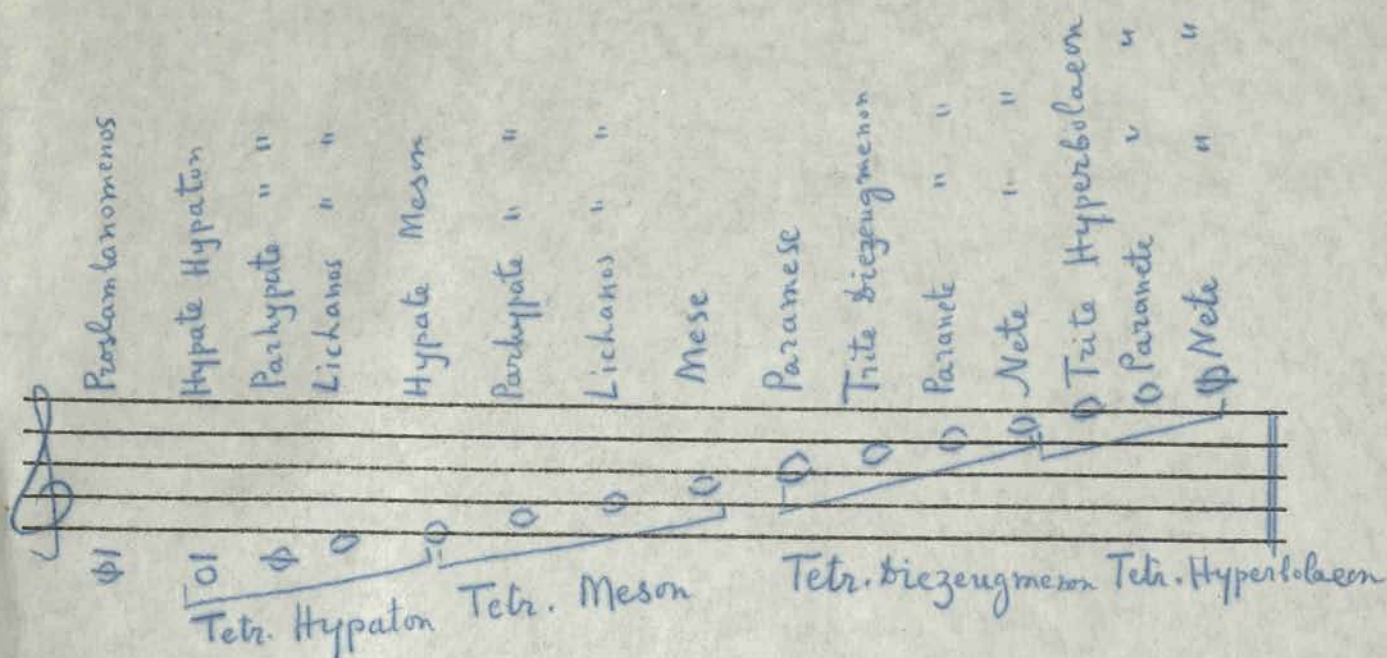 Proslamlanomenos
Hypate Hypaton
Parhypate " "
Lichanos " "
Hypate Meson
Parhypate " "
Lichanos " "
Mese
Paramese
Trite Diezeugmenon
Paranete " "
Nete " "
Trite Hyperbolaeon
Paranete " "
Nete " "
Tetr. Hypaton
Tetr. Meson
Tetr. Diezeugmenon
Tetr. Hyperbolaeon